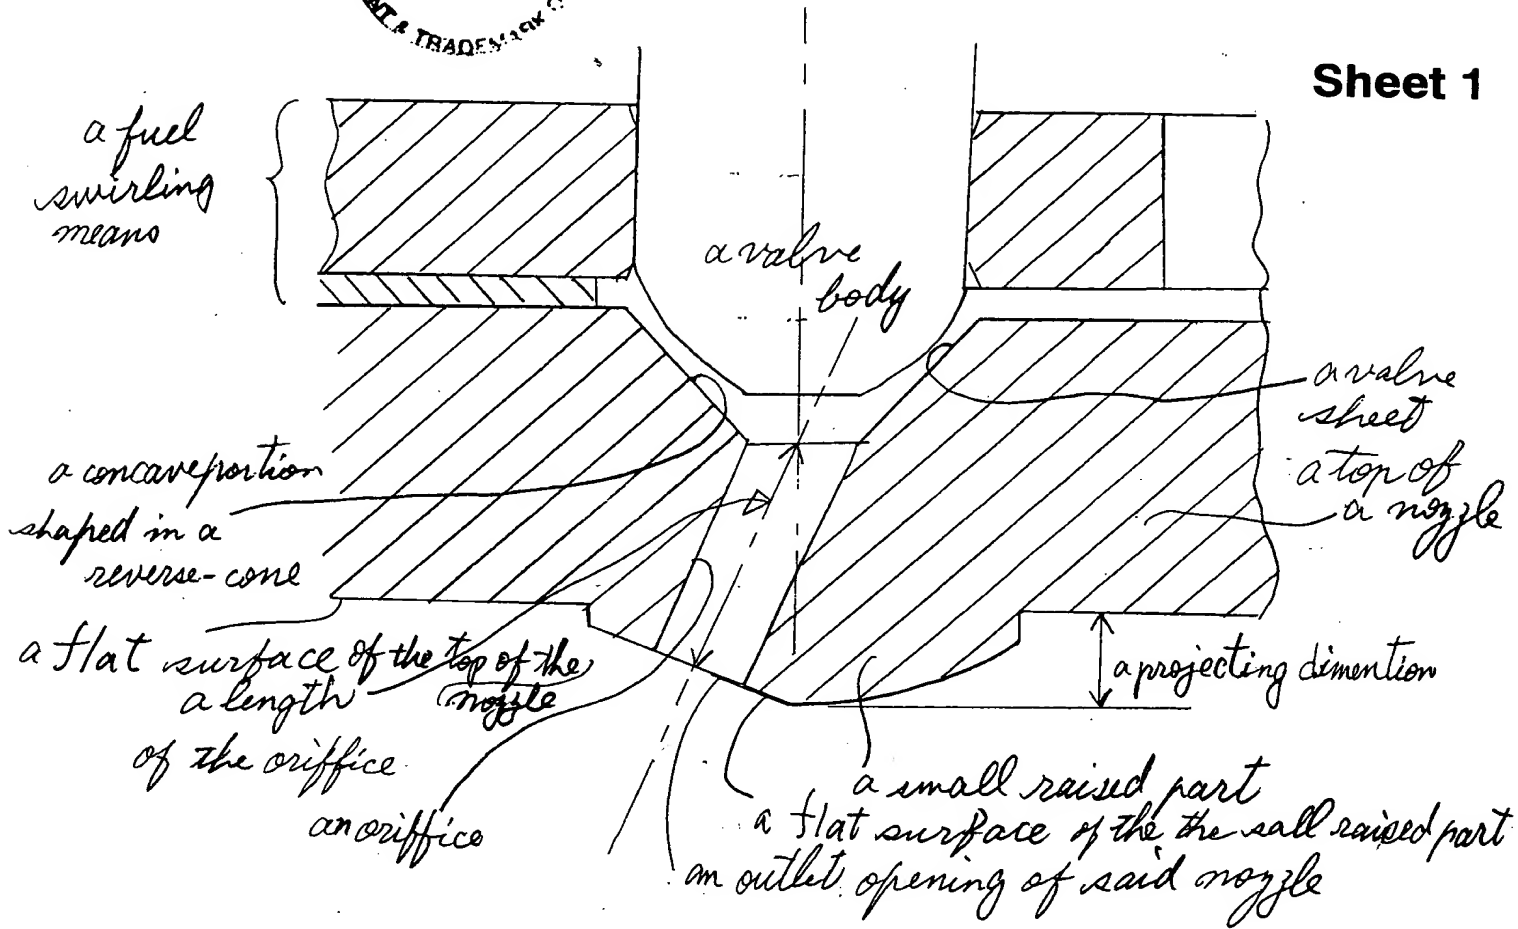 NT & TRADEMARK
Sheet 1
a fuel
swirling
means
a valve
body
a valve
sheet
a top of
a nozzle
a concave portion
shaped in a
reverse-cone
a flat surface of the top of the
nozzle
a length
of the oriffice
an oriffice
a projecting dimention
a small raised part
a flat surface of the the sall raised part
an outlet opening of said nozzle